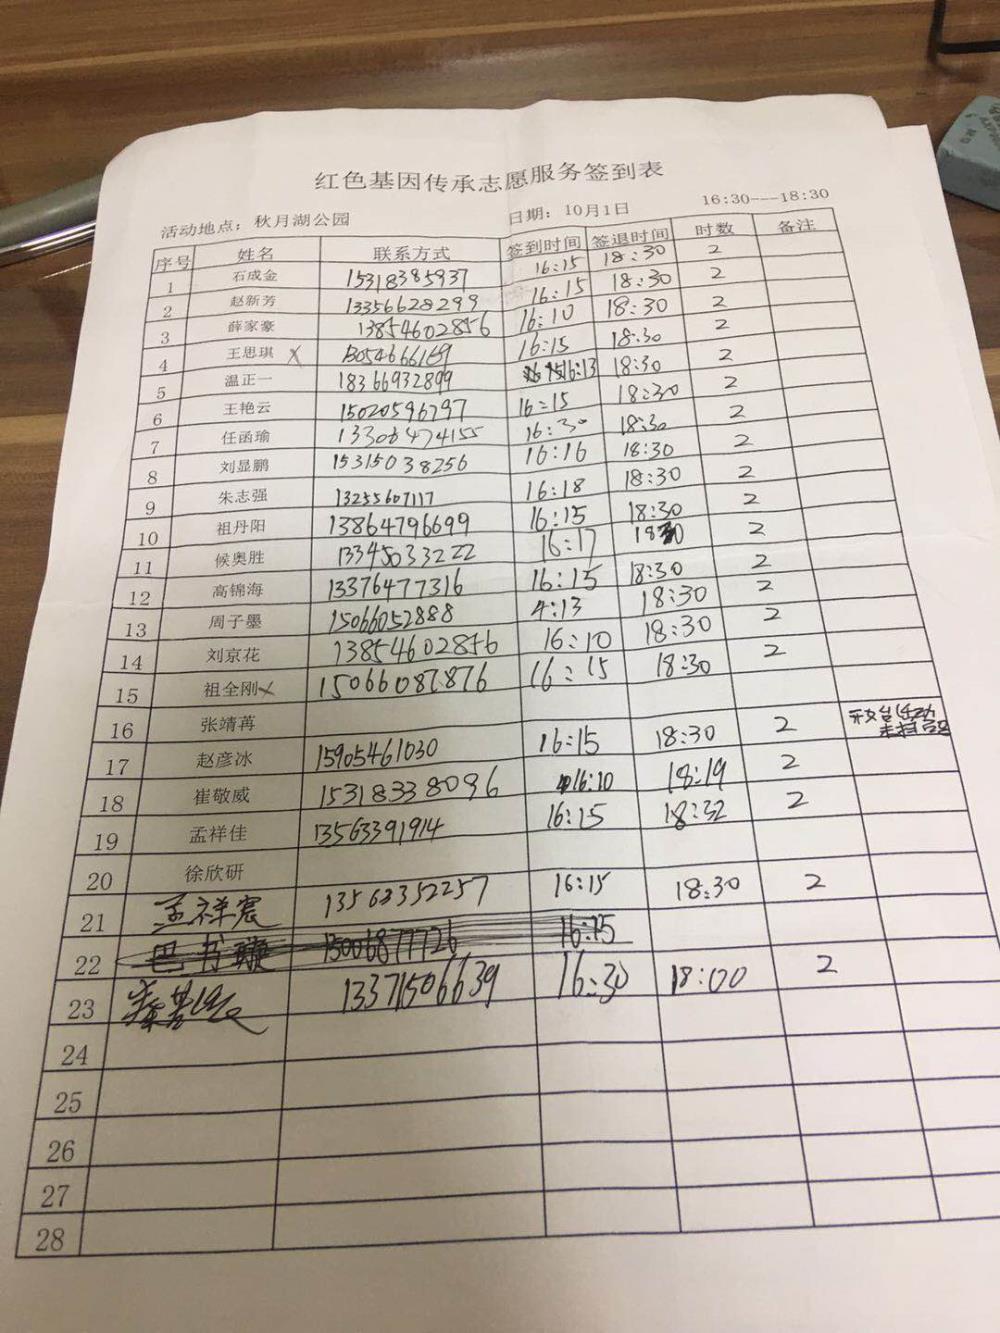 红色基因传承志愿服务签到表
活动地点：秋月湖公园 日期：10月1日 16:30---18:30
序号 姓名 联系方式 签到时间 签退时间 时数 备注
1 石成金 15318385937 16:15 18:30 2
2 赵新芳 13356628299 16:15 18:30 2
3 薛家豪 13854602856 16:10 18:30 2
4 王思琪 X 13054666169 16:15 18:30 2
5 温正一 18366932899 16:13 18:30 2
6 王艳云 15020596797 16:15 18:30 2
7 任函瑜 13306474155 16:30 18:30 2
8 刘显鹏 15315038256 16:16 18:30 2
9 朱志强 13255607117 16:18 18:30 2
10 祖丹阳 13864796699 16:15 18:30 2
11 候奥胜 13345033222 16:17 1830 2
12 高锦海 13376477316 16:15 18:30 2
13 周子墨 15066052888 4:13 18:30 2
14 刘京花 13854602856 16:10 18:30 2
15 祖全刚 X 15066087876 16:15 18:30 2
16 张靖苒
17 赵彦冰 15905461030 16:15 18:30 2
18 崔敬威 15318338096 16:10 18:19 2
19 孟祥佳 13563391914 16:15 18:32 2
20 徐欣研
21 孟祥宸 13563352257 16:15 18:30 2
22 巴书 15006877726 16:15
23 13371506639 16:30 18:00 2
24
25
26
27
28